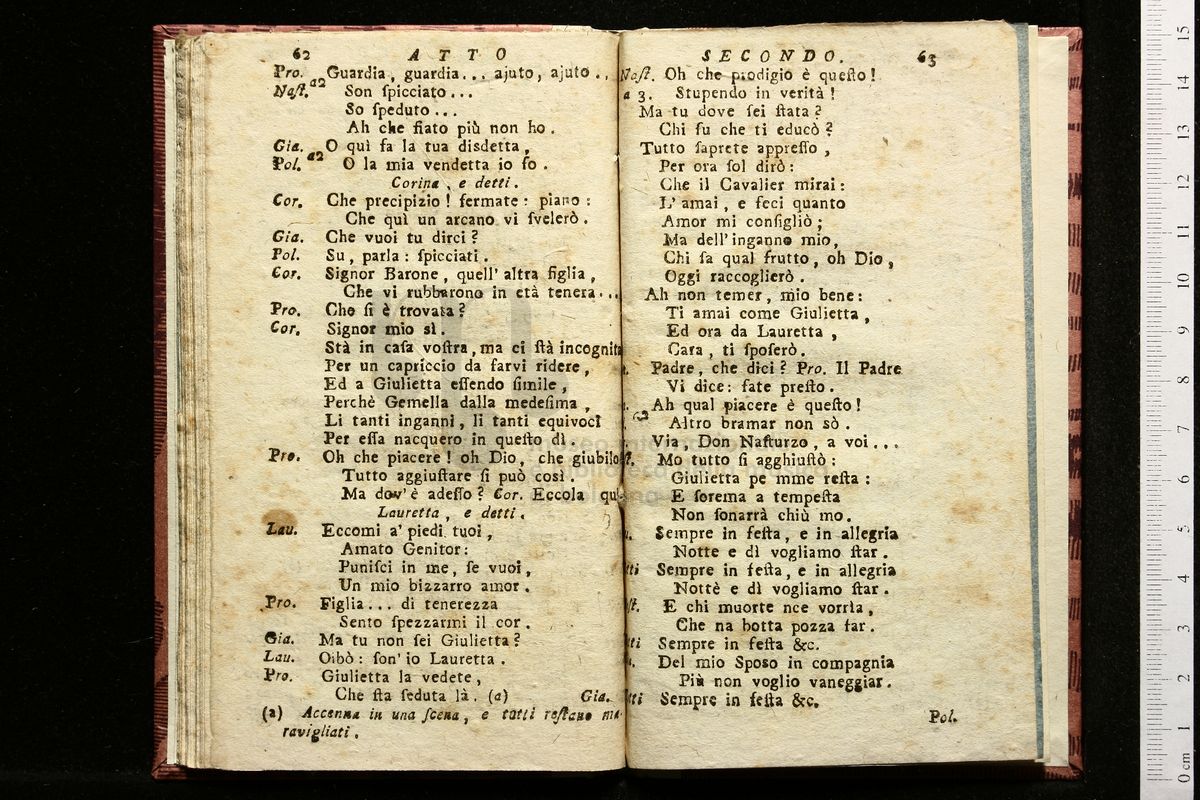 62 ATTO
Pro. Guardia, guardia... ajuto, ajuto..
Naſt. a2 Son ſpicciato...
So ſpeduto...
Ah che fiato più non ho.
Gia. O quì fa la tua disdetta,
Pol. a2 O la mia vendetta io fo.
Corina, e detti.
Cor. Che precipizio! fermate: piano:
Che quì un arcano vi ſvelerò.
Gia. Che vuoi tu dirci?
Pol. Su, parla: ſpicciati.
Cor. Signor Barone, quell' altra figlia,
Che vi rubbarono in età tenera...
Pro. Che ſi è trovata?
Cor. Signor mio sì.
Stà in caſa voſtra, ma ci ſtà incognita
Per un capriccio da farvi ridere,
Ed a Giulietta eſſendo ſimile,
Perchè Gemella dalla medeſima,
Li tanti inganni, li tanti equivoci
Per eſſa nacquero in queſto dì.
Pro. Oh che piacere! oh Dio, che giubilo
Tutto aggiuſtare ſi può così.
Ma dov' è adeſſo? Cor. Eccola qu
Lauretta, e detti.
Lau. Eccomi a' piedi tuoi,
Amato Genitor:
Puniſci in me, ſe vuoi,
Un mio bizzarro amor.
Pro. Figlia... di tenerezza
Sento ſpezzarmi il cor.
Gia. Ma tu non ſei Giulietta?
Lau. Oibò: ſon' io Lauretta.
Pro. Giulietta la vedete,
Che ſta ſeduta là. (a) Gia.
(a) Accenna in una ſcena, e tutti reſtano ma-
ravigliati.
SECONDO. 63
Naſt. Oh che prodigio è queſto!
a 3. Stupendo in verità!
Ma tu dove ſei ſtata?
Chi fu che ti educò?
Tutto ſaprete appreſſo,
Per ora ſol dirò:
Che il Cavalier mirai:
L' amai, e feci quanto
Amor mi conſigliò;
Ma dell' inganno mio,
Chi ſa qual frutto, oh Dio,
Oggi raccoglierò.
Ah non temer, mio bene:
Ti amai come Giulietta,
Ed ora da Lauretta,
Cara, ti ſpoſerò.
Padre, che dici? Pro. Il Padre
Vi dice: fate preſto.
Ah qual piacere è queſto!
a2 Altro bramar non sò.
Via, Don Naſturzo, a voi...
Mo tutto ſi agghiuſtò:
Giulietta pe mme reſta:
E ſorema a tempeſta
Non ſonarrà chiù mo.
Sempre in feſta, e in allegria
Notte e dì vogliamo ſtar.
tti Sempre in feſta, e in allegria
Nottè e dì vogliamo ſtar.
ſt. E chi muorte nce vorrìa,
Che na botta pozza far.
tti Sempre in feſta &c.
Del mio Sposo in compagnia
Più non voglio vaneggiar.
tti Sempre in feſta &c.
Pol.